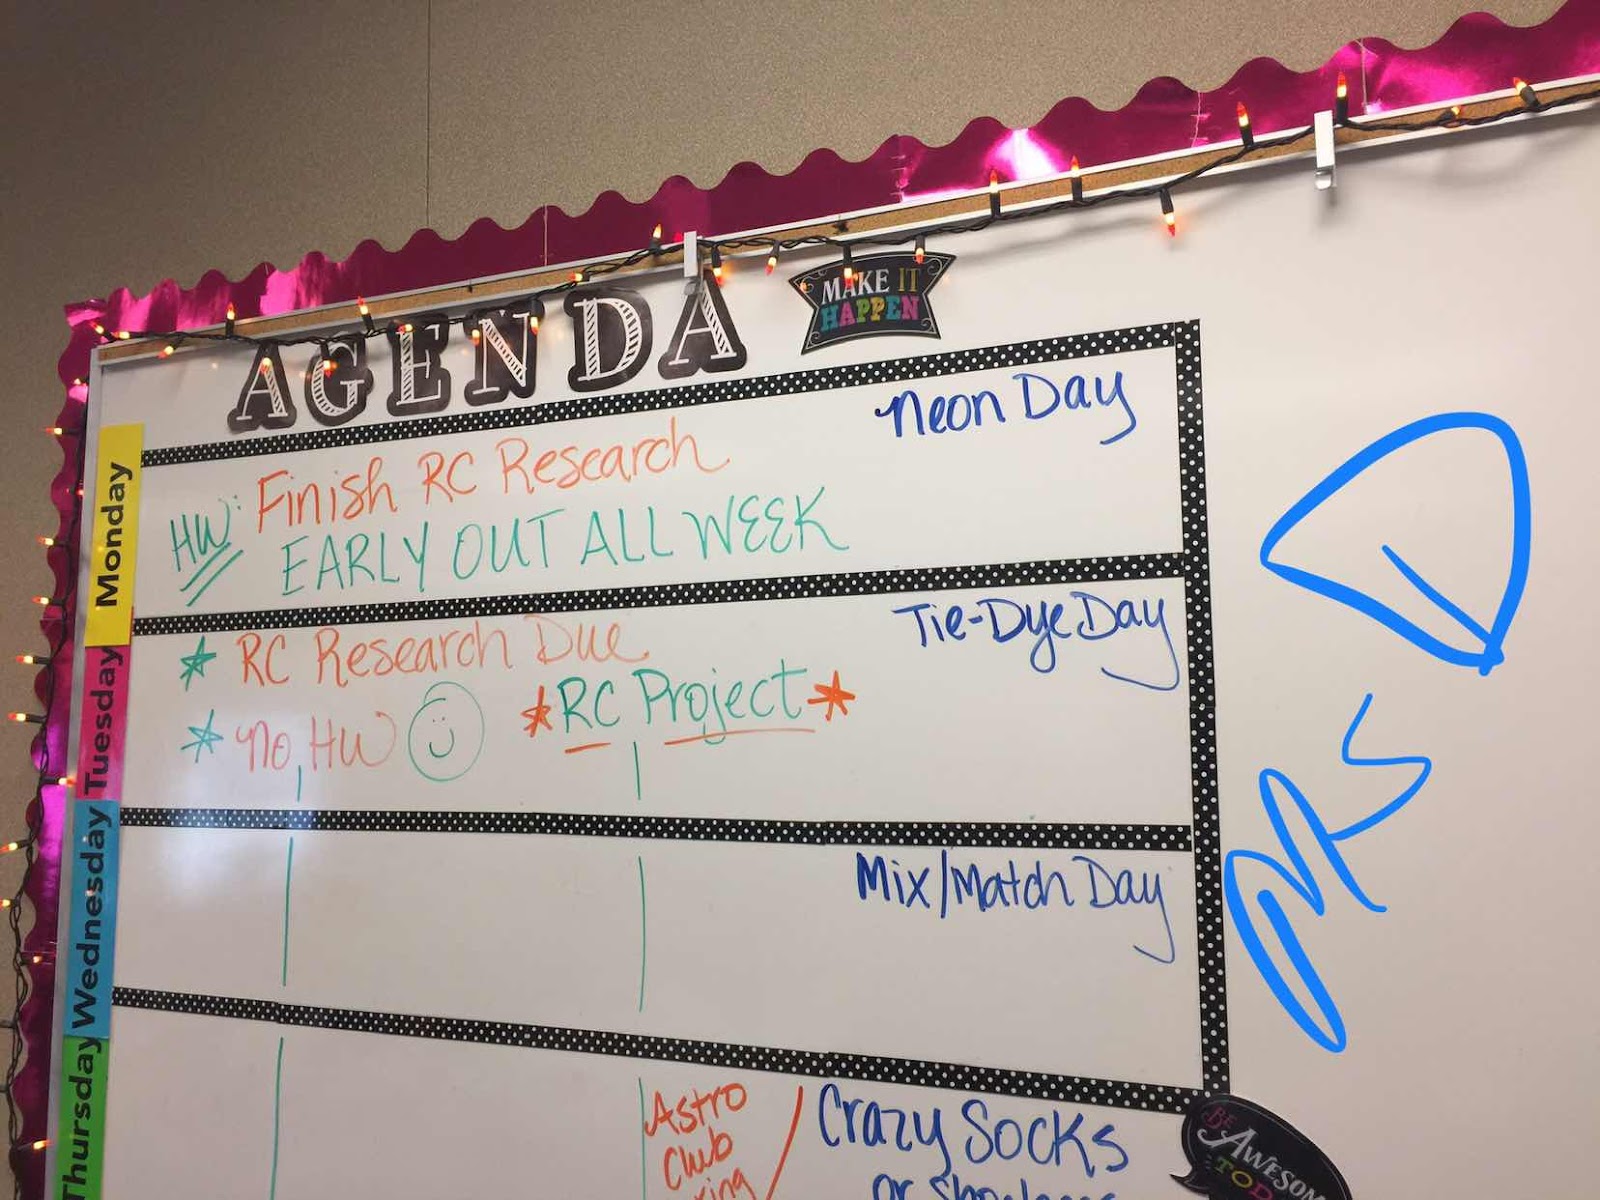 AGENDA
MAKE IT
HAPPEN
Monday
Neon Day
HW: Finish RC Research
EARLY OUT ALL WEEK
Tuesday
Tie-Dye Day
RC Research Due
*RC Project*
No HW
Wednesday
Mix/Match Day
Thursday
Astro
Club
Crazy Socks
or
BE
AWESOME
MRS D